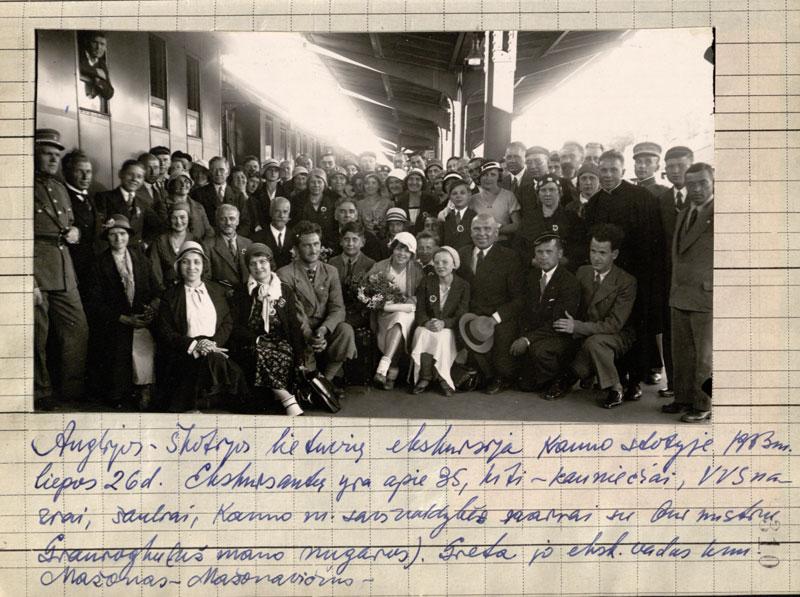 Anglijos-Škotijos lietuvių ekskursija Kauno stotyje 1933m.
liepos 26d. Ekskursantų yra apie 35, kiti - kauniečiai, VVS na-
riai, šauliai, Kauno m. savivaldybės nariai su
Grauroghu (už mano nugaros). Greta jo eksk. vadas kun.
Mažonas - Mažonavičius -
310